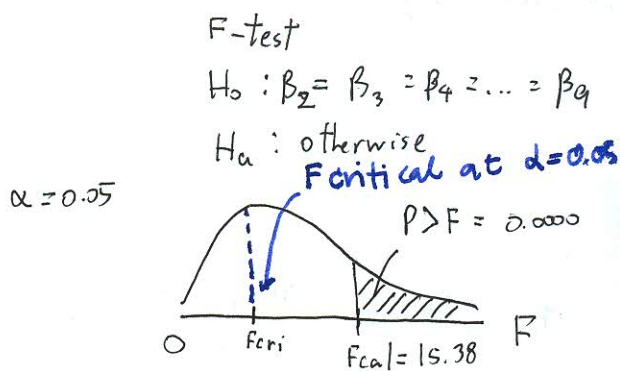 F-test
H₀ : β₂ = β₃ = β₄ = ... = β₉
Hₐ : otherwise
F critical at α=0.05
α = 0.05
P>F = 0.0000
0
Fcri
Fcal = 15.38
F